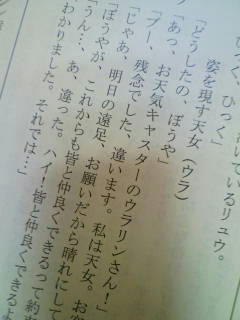 ひっく、ひっく」
いているリュウ。
姿を現す天女(ウラ)
「どうしたの、ぼうや」
「あっ、お天気キャスターのウラリンさん!」
「ブー、残念でした、違います。私は天女。お
「じゃあ、明日の遠足、お願いだから晴れにして
「ぼうやが、これからも皆と仲良くできるって約
「うん…、あ、違った。ハイ!皆と仲良くできるよ
わかりました。それでは…」